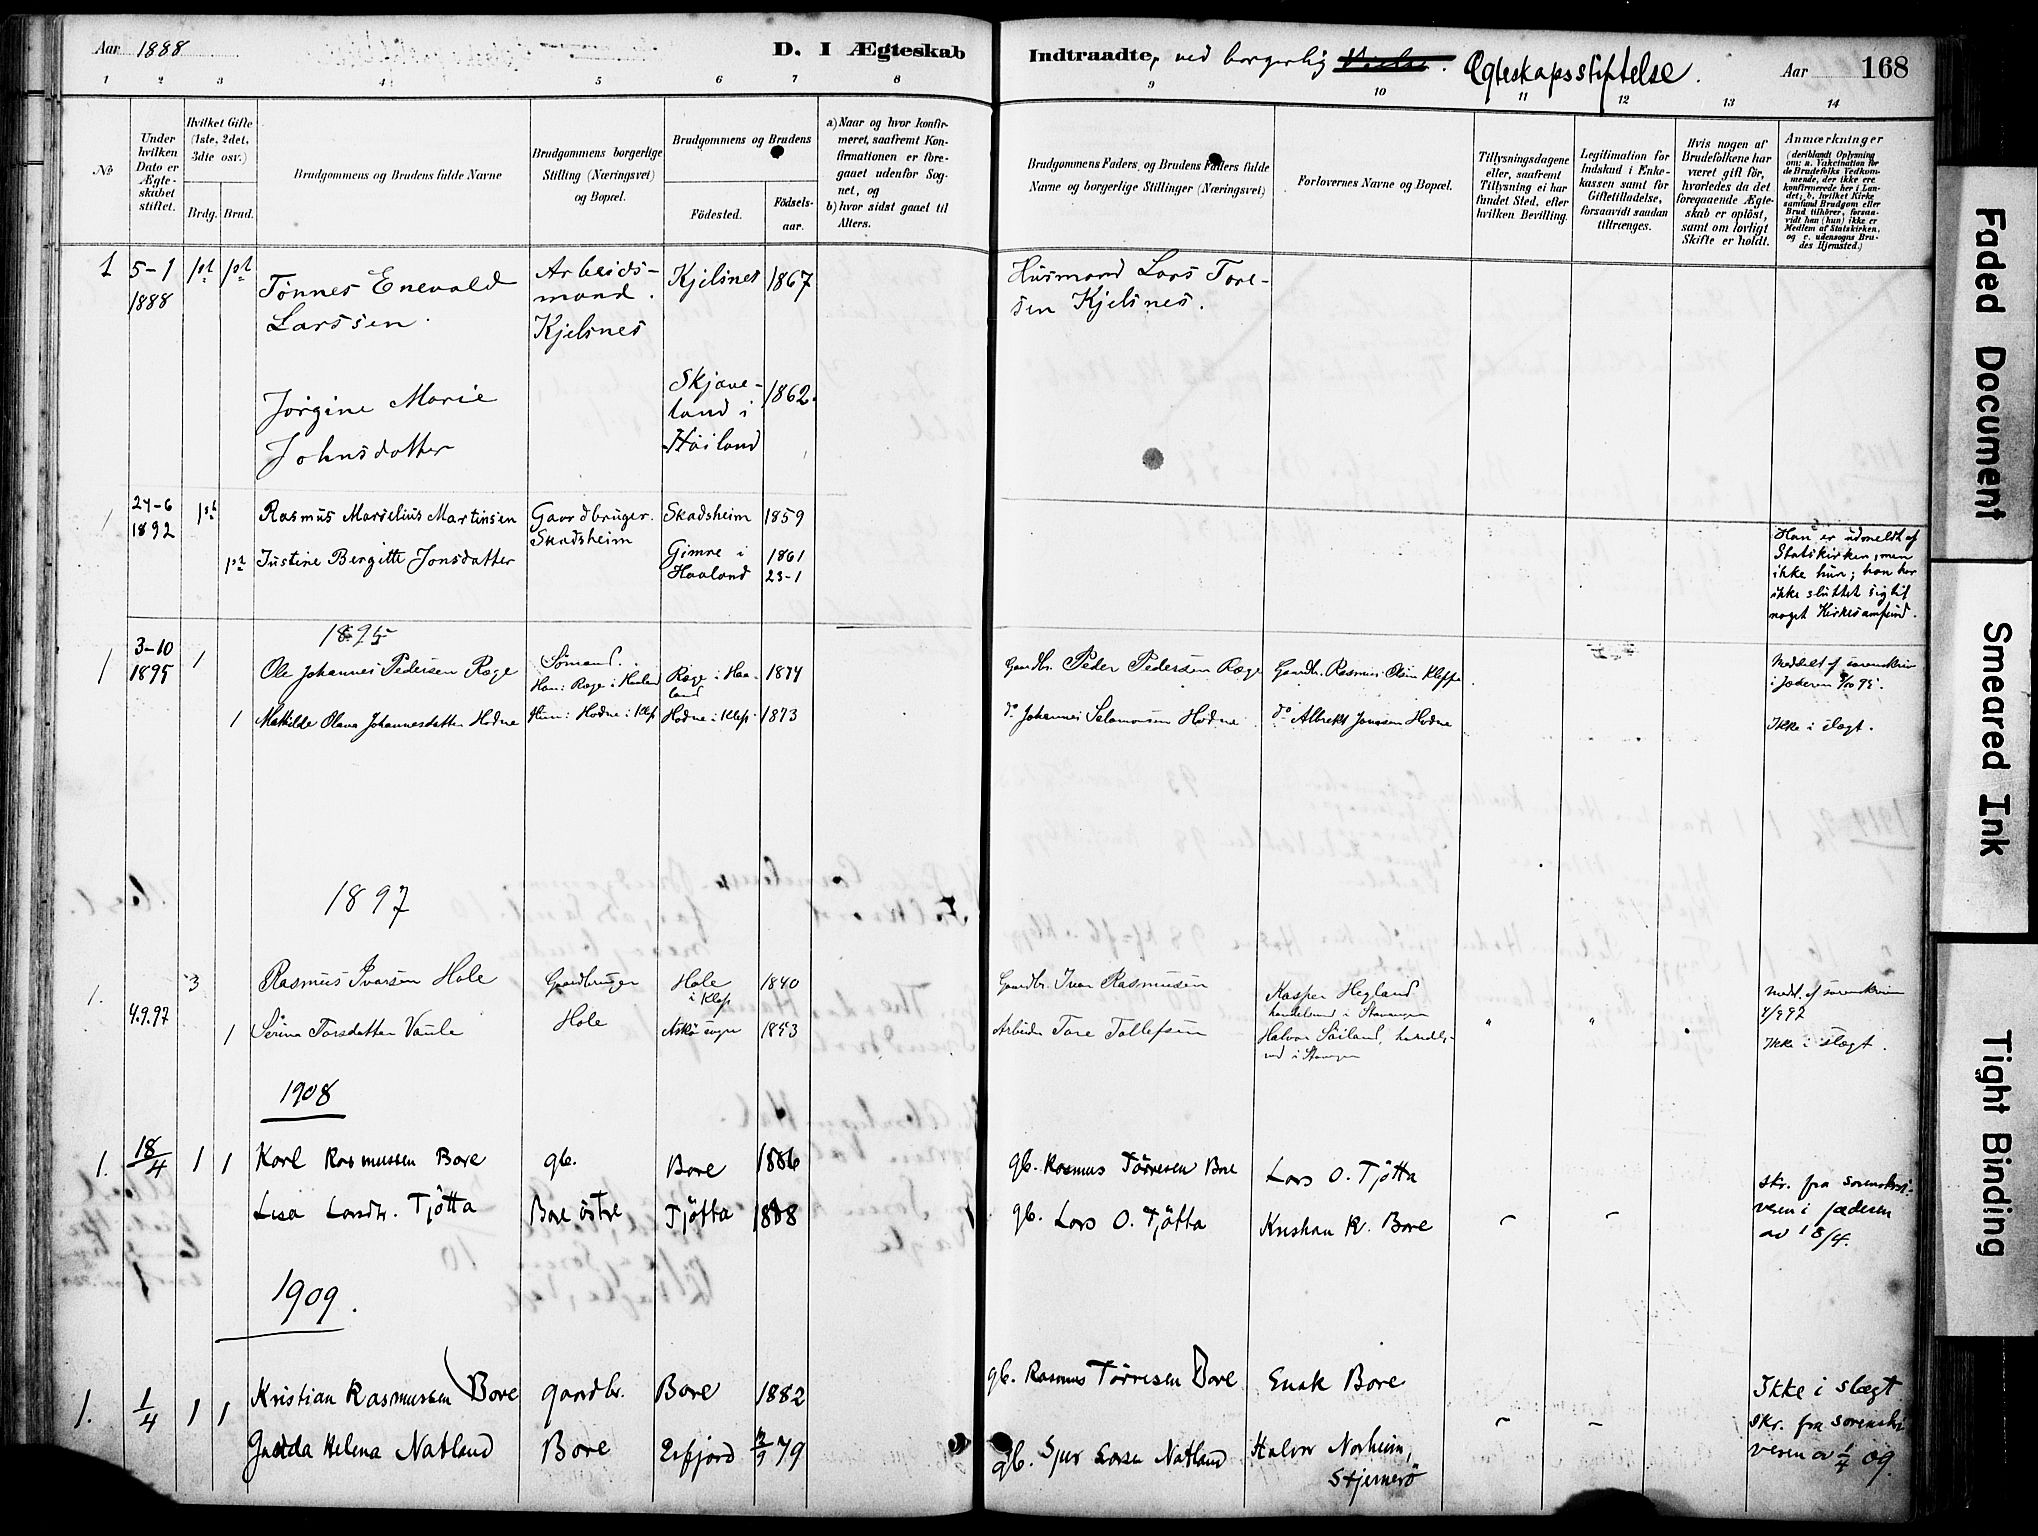 Aar 1888
D. I Ægteskab
Indtraadte, ved borgerlig Ægteskapsstiftelse.
Aar
168
1 2 3 4 5 6 7 8 9 10 11 12 13 14
No
Under hvilken Dato er Ægteskabet stiftet.
Hvilket Gifte (1ste, 2det, 3die osv.)
Brdg. Brud.
Brudgommens og Brudens fulde Navne
Brudgommens borgerlige Stilling (Næringsvei) og Bopæl.
Brudgommens og Brudens
Födested.
Födselsaar.
a) Naar og hvor konfirmeret, saafremt Konfirmationen er foregaaet udenfor Sognet, og
b) hvor sidst gaaet til Alters.
Brudgommens Faders og Brudens Faders fulde Navne og borgerlige Stillinger (Næringsvei)
Forlovernes Navne og Bopæl.
Tillysningsdagene eller, saafremt Tillysning ei har fundet Sted, efter hvilken Bevilling.
Legitimation for Indskud i Enkekassen samt for Giftetilladelse, forsaavidt saadan tiltrænges.
Hvis nogen af Brudefolkene har været gift för, hvorledes da det foregaaende Ægteskab er oplöst, samt om lovligt Skifte er holdt.
Anmærkninger
(deriblandt Oplysning om: a. Vakcination for de Brudefolks Vedkommende, der ikke ere konfirmerede her i Landet; b. hvilket Kirkesamfund Brudgom eller Brud tilhörer, forsaavidt han (hun) ikke er Medlem af Statskirken, og c. udensogns Brudes Hjemsted.)
1 5-1 1888 1st 1st Tønnes Enevald Larssen. Arbeidsmand. Kjelsnes Kjelsnes 1867 Husmand Lars Toresen Kjelsnes.
Jørgine Marie Johnsdatter Skjaveland i Høiland 1862.
1 24-6 1892 1st Rasmus Marselius Martinsen Gaardbruger. Skadsheim Skadsheim 1859
1st Justine Bergitte Jonsdatter Gimre i Haaland 1861 23-1
Han er udmeldt af Statskirken, men ikke hun; han har ikke sluttet sig til noget Kirkesamfund.
1895
1 3-10 1895 1 Ole Johannes Pedersen Ræge Sømand. Han: Ræge i Haaland Ræge i Haaland 1874 Gaardbr. Peder Pedersen Ræge Gaardbr. Rasmus Olsen Kleppe Meddelt af sorenskriv i Jæderen 3/10 95.
1 Mathilde Olava Johannesdatter Hodne Hun: Hodne i Klep Hodne i Klep 1873 do Johannes Salamonsen Hodne do Albrekt Jonassen Hodne Ikke i slægt.
1897
1. 4.9.97 3 Rasmus Ivarsen Hole Gaardbruger Hole i Klep 1840 Gaardbr. Ivar Rasmussen Kasper Hegland handelsmd i Stavanger Medd. af sorenskriv
1 Serina Torsdatter Vaule Hole 1853 Arbeider Tore Tollefsen Halvor Söiland, i Stavanger " " Ikke i slægt.
1908
1. 18/4 1 1 Karl Rasmussen Bore gb. Bore 1886 gb. Rasmus Tørresen Bore Lars O. Tjøtta
Lisa Larsdtr. Tjøtta Bore østre Tjøtta 1888 gb. Lars O. Tjøtta Kristian R. Bore
skr. fra sorenskriveren i Jæderen av 18/4.
1909.
1. 1/4 1 1 Kristian Rasmussen Bore gaardbr. Bore 1882 gb. Rasmus Tørresen Bore Enok Bore
Helena Natland Bore 79 gb. Sjur Larsen Natland Halvor Norheim, Stjernerø
Ikke i slægt
skr. fra sorenskriveren av 1/4 09.
Faded Document
Smeared Ink
Tight Binding